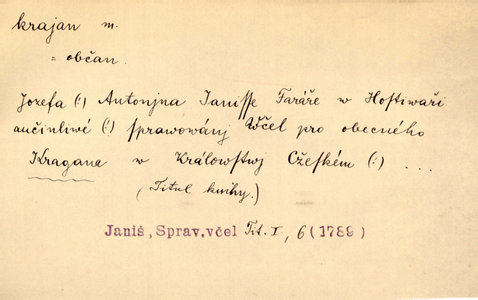 krajan m.
= občan.
Jozefa (:) Antonjna Janisse Faráře w Hostiwaři
aučinliwé (:) sprawowánj Wčel pro obecného
Kragana w Králowstwj Cžeském (:) ...
(Titul knihy.)
Janiš, Sprav.včel Tit. I, 6 (1789)